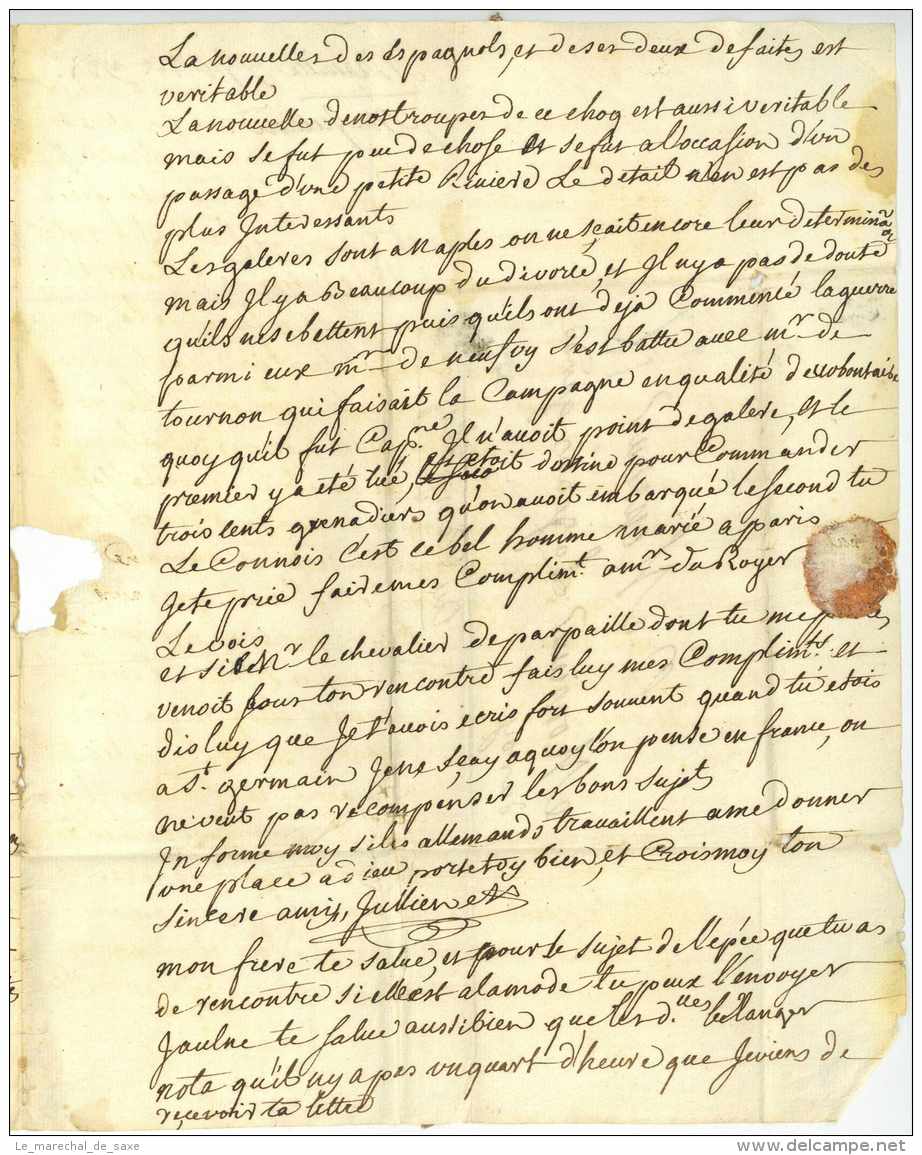 La nouvelles des Espagnols, et de ses deux defaites est
veritable
La nouvelle de nos troupes de ce choq est aussi veritable
mais se fut peu de chose et se fut a l'occasion d'vn
passage d'vne petite Riviere Le détail n'en est pas des
plus Interessants
Les galeres sont a Naples on ne sçait encore leur determinaõn
mais Il y a Beaucoup du divorce, et Il ny a pas de doute
qu'ils ne se bettent puis qu'ils ont deja Commencé la guerre
parmi eux mr de neufvy s'est battu avec mr. de
tournon qui faisait la Campagne en qualité de volontaire
quoy qu'il fut Capne. Il n'avoit point de galere, et le
premier y a été tué, etoit destiné pour Commander
trois cents grenadiers qu'on avoit embarqué le second tu
Le Connois c'est ce bel homme marié a paris
Je te prie faire mes Complimt. a mrs Du Royer
Le Vois
et si Mr le chevalier de parpaille dont tu me
venoit sous ton rencontre fais luy mes Complimts. et
dis luy que Je t'avois ecris fort souvent quand tu etois
a St. germain Je ne sçay a quoy l'on pense en france, on
ne veut pas recompenser les bons sujets
Informe moy si les allemands travaillent a me donner
vne place adieu, porte toy bien, et Crois moy ton
sincere amis, Jullien
mon frere te salue, et pour le sujet de l'épée que tu as
de rencontre si elle est a la mode tu peux l'envoyer
Jaulne te salue aussi bien que les d.lles bellanger
nota qu'il ny a pas vn quart d'heure que Je viens de
reçevoir ta lettre
Le_marechal_de_saxe
www.delcampe.net